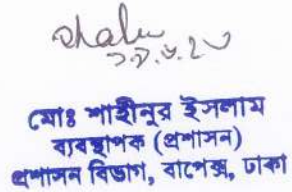 মোঃ শাহীনুর ইসলাম
ব্যবস্থাপক (প্রশাসন)
প্রশাসন বিভাগ, বাপেক্স, ঢাকা